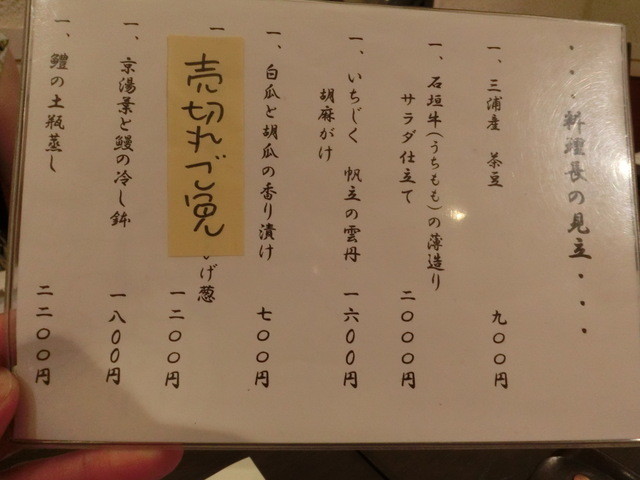 ・・・料理長の見立・・・
一、三浦産 茶豆 九〇〇円
一、石垣牛(うちもも)の薄造り
サラダ仕立て 二〇〇〇円
一、いちじく 帆立の雲丹
胡麻がけ 一六〇〇円
一、白瓜と胡瓜の香り漬け 七〇〇円
一
売切れご免
げ葱
一二〇〇円
一、京湯葉と鰻の冷し鉢 一八〇〇円
一、鱧の土瓶蒸し 二二〇〇円